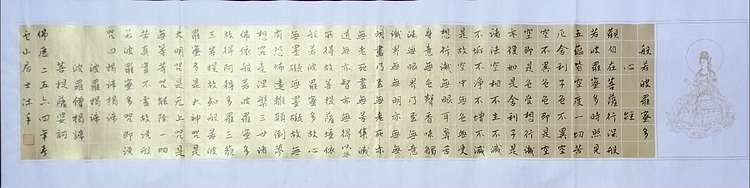 般若波羅蜜多
心經
觀自在菩薩行深般
若波羅蜜多時照見
五蘊皆空度一切苦
厄舍利子色不異空
空不異色色即是空
空即是色受想行識
亦復如是舍利子是
諸法空相不生不滅
不垢不淨不增不減
是故空中無色無受
想行識無眼耳鼻舌
身意無色聲香味觸
法無眼界乃至無意
識界無無明亦無無
明盡乃至無老死亦
無老死盡無苦集滅
道無智亦無得以無
所得故菩提薩埵依
般若波羅蜜多故心
無罣礙無罣礙故無
有恐怖遠離顛倒夢
想究竟涅槃三世諸
佛依般若波羅蜜多
故得阿耨多羅三藐
三菩提故知般若波
羅蜜多是大神咒是
大明咒是無上咒是
無等等咒能除一切
苦真實不虛故說般
若波羅蜜多咒即說
咒曰揭諦揭諦
波羅揭諦
波羅僧揭諦
菩提薩婆訶
佛曆二五六四年
山居士沐手